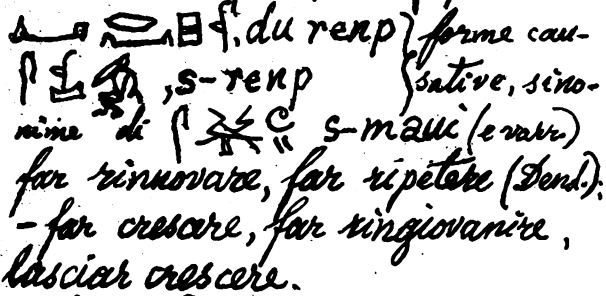 , du renp } forme cau-
, s-renp { sative, sino-
nime di s-maui (e varr.)
far rinnovare, far ripetere (Dend.);
- far crescere, far ringiovanire,
lasciar crescere.